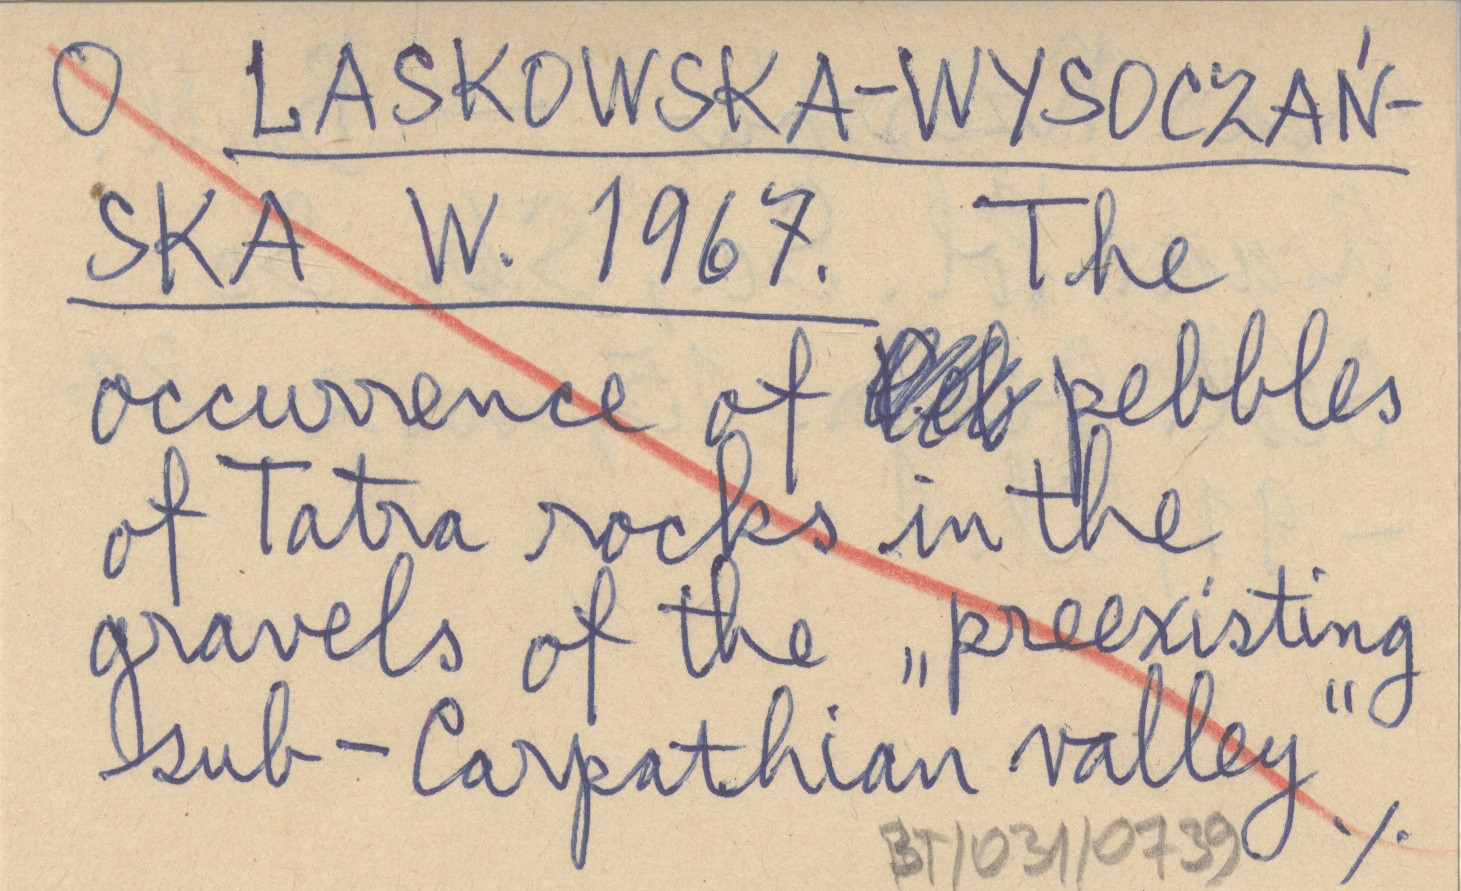 O LASKOWSKA-WYSOCZAŃ-
SKA W. 1967. The
occurrence of pebbles
of Tatra rocks in the
gravels of the „preexisting
sub-Carpathian valley"
·/.
BT/031/0739